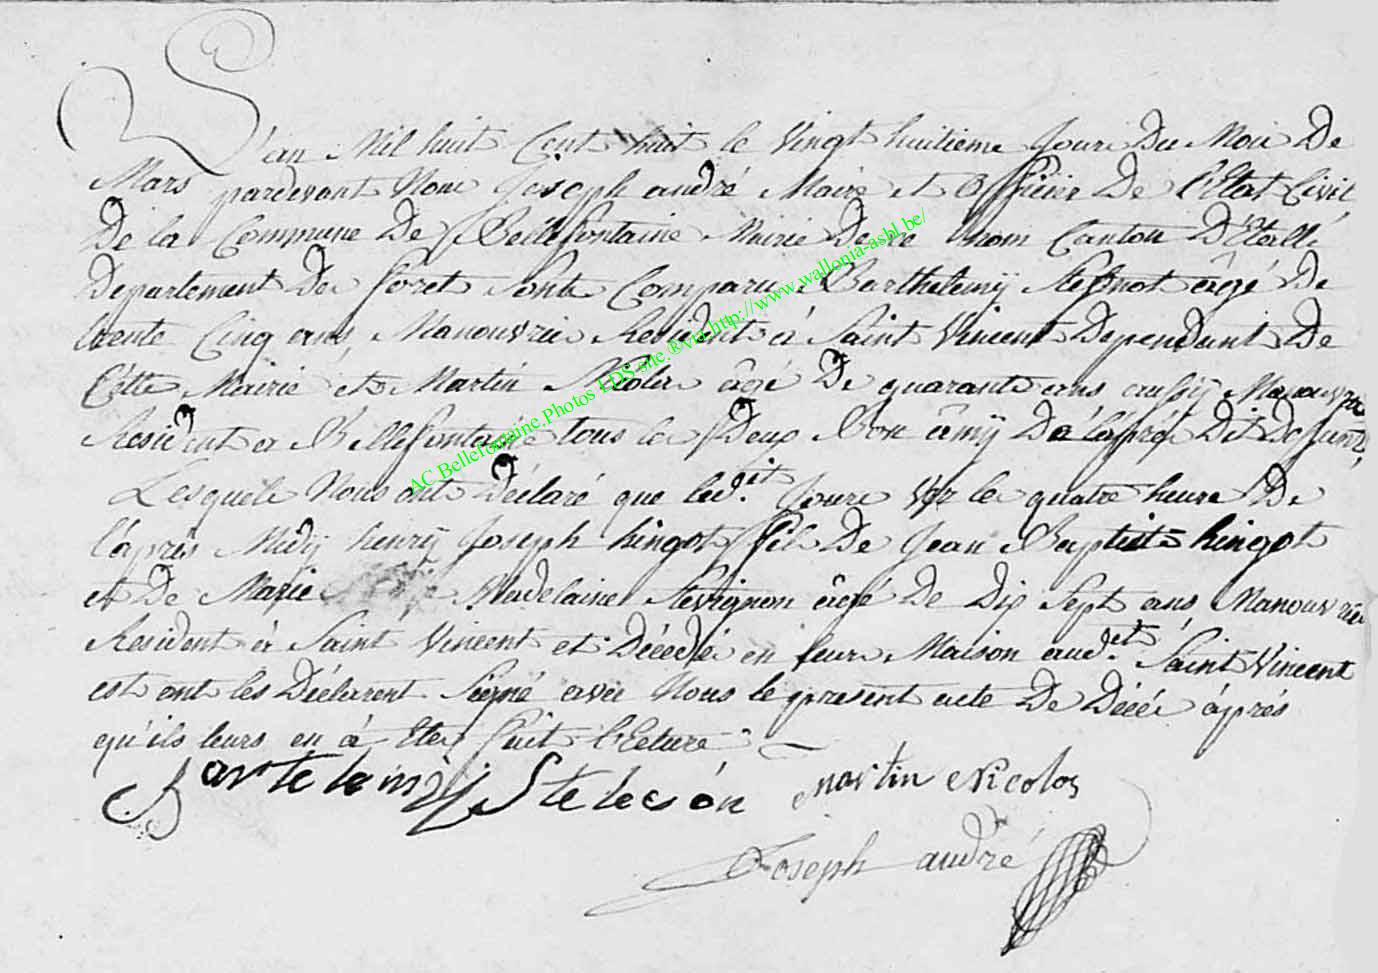 L'an Mil huit Cent huit le Vingt huitieme Jour Du Moi De
Mars pardevant Nous Joseph andré Maire et Officier De l'Etat Civil
De la Commune De Bellefontaine Mairie De ce nom Canton D'Etalle
Departement De foret Sont Comparu Barthelemÿ âgé De
trente Cinq ans, Manouvrie Resident à Saint Vincent Dependant De
Cette Mairie et Martin Nicolas âgé De quarante ans aussÿ Manouvrie
Resident a Bellefontaine tous les Deux Bon âmÿ De l'aprés Dit Defunt,
Lesquele Nous ont Déclaré que led.it Jour les quatre heure De
l'aprés Midÿ henrÿ Joseph hingot fils De Jean Baptiste hingot
et De Marie Madelaine âgé De Dix Sept ans Manouvrie
Resident à Saint Vincent et Décedé en leur Maison aud.et Saint Vincent
est ont les Déclarent Signé avec Nous le present acte De Décé áprés
qu'ils leurs en à Eter fait l'Eeture
Bartelemij Stelesón Martin Nicolas
Joseph andré
AC Bellefontaine Photos LDS site ®via http://www.wallonia-asbl.be/